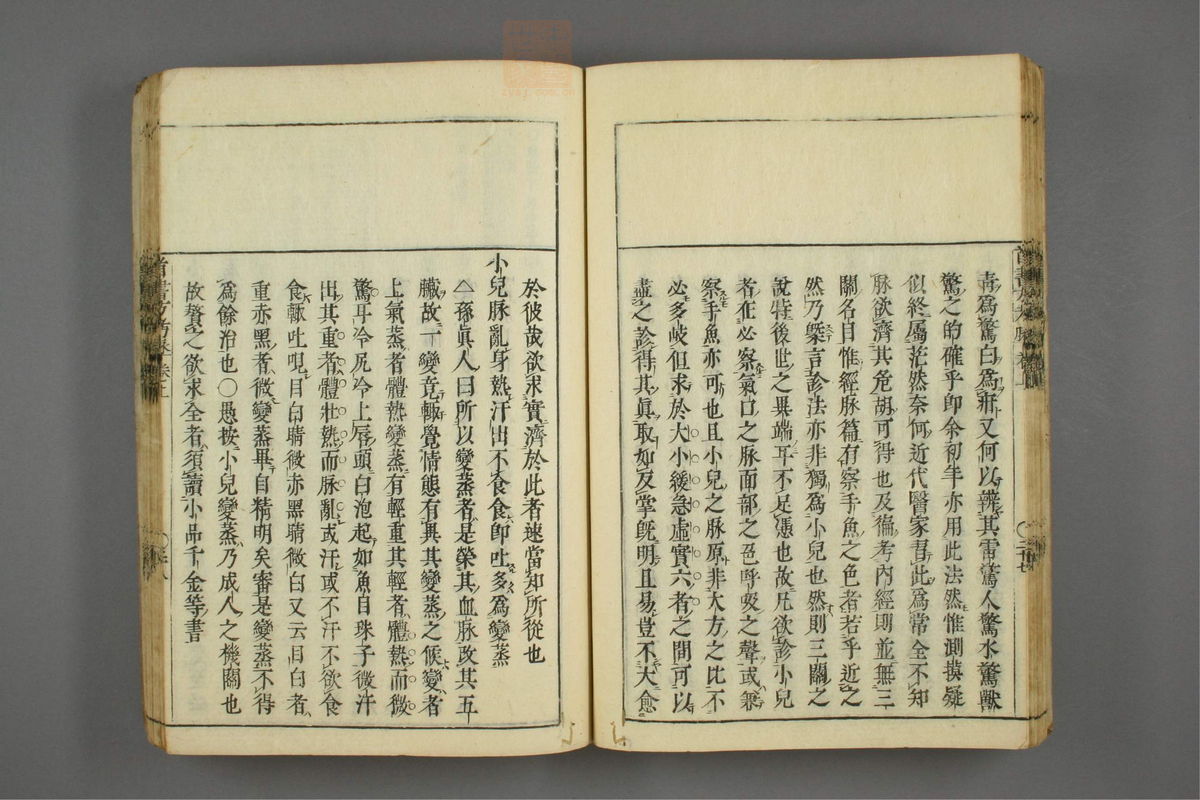 青爲驚白爲疳又何以辨其雷驚人驚水驚獸
驚之的確乎卽余初年亦用此法然惟測摸疑
似終屬茫然奈何近代醫家書此爲常全不知
脉欲濟其危胡可得也及徧考內經則並無三
關名目惟經脉篇有察手魚之色者若乎近之
然乃槩言診法亦非獨爲小兒也然則三關之
說特後世之異端耳不足憑也故凡欲診小兒
者在必察氣口之脉面部之色呼吸之聲或兼
察手魚亦可也且小兒之脉原非大方之比不
必多岐但求於大小緩急虛實六者之間可以
盡之診得其眞取如反掌旣明且易豈不大愈
於彼哉欲求實濟於此者速當知所從也
小兒脉亂身熱汗出不食食卽吐多爲變蒸
△孫眞人曰所以變蒸者是榮其血脉改其五
臟故一變竟輙覺情態有異其變蒸之候變者
上氣蒸者體熱變蒸有輕重其輕者體熱而微
驚耳冷尻冷上唇頭白泡起如魚目珠子微汗
出其重者體壯熱而脉亂或汗或不汗不欲食
食輙吐哯目白睛微赤黑睛微白又云目白者
重赤黑者微變蒸畢自精明矣審是變蒸不得
爲餘治也〇愚按小兒變蒸乃成人之機關也
故贅之欲求全者須讀小品千金等書